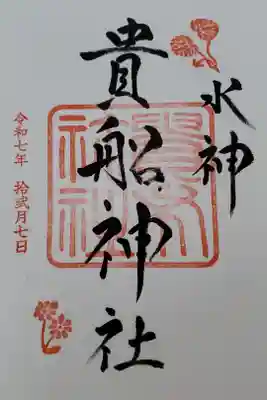 水神
貴船神社
令和七年 拾弐月七日